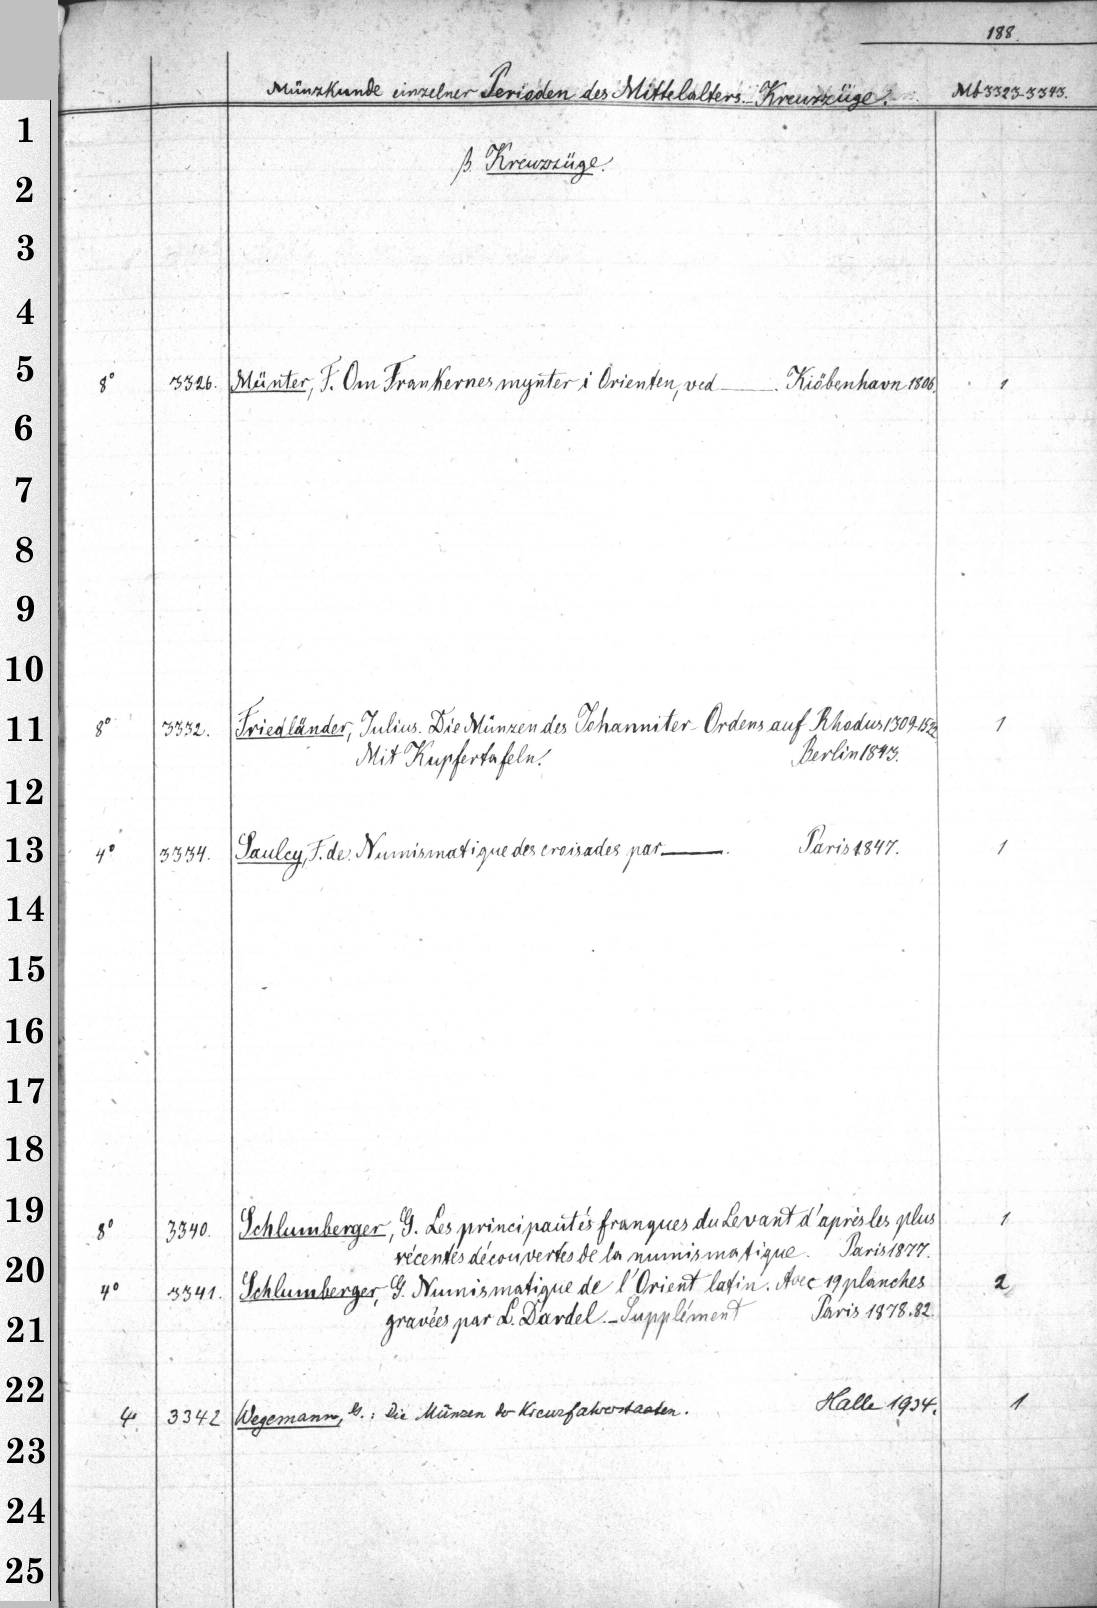 188.
Münzkunde einzelner Perioden des Mittelalters. Kreuzzüge. Mb 3323-3343.
1
β. Kreuzzüge.
2
3
4
5
8° 3326. Münter, F. Om Frankernes mynter i Orienten, ved ——. Kiöbenhavn 1806. 1
6
7
8
9
10
11
8° 3332. Friedländer, Julius. Die Münzen des Johanniter-Ordens auf Rhodus 1309-1522
Mit Kupfertafeln. Berlin 1843. 1
12
13
4° 3334. Saulcy, F. de. Numismatique des croisades par ——. Paris 1847. 1
14
15
16
17
18
19
8° 3340. Schlumberger, G. Les principautés franques du Levant d'après les plus 1
récentes découvertes de la numismatique. Paris 1877.
20
4° 3341. Schlumberger, G. Numismatique de l'Orient latin. Avec 19 planches 2
gravées par L. Dardel. - Supplément Paris 1878.82.
21
22
4° 3342 Wegemann, G.: Die Münzen der Kreuzfahrerstaaten. Halle 1934. 1
23
24
25